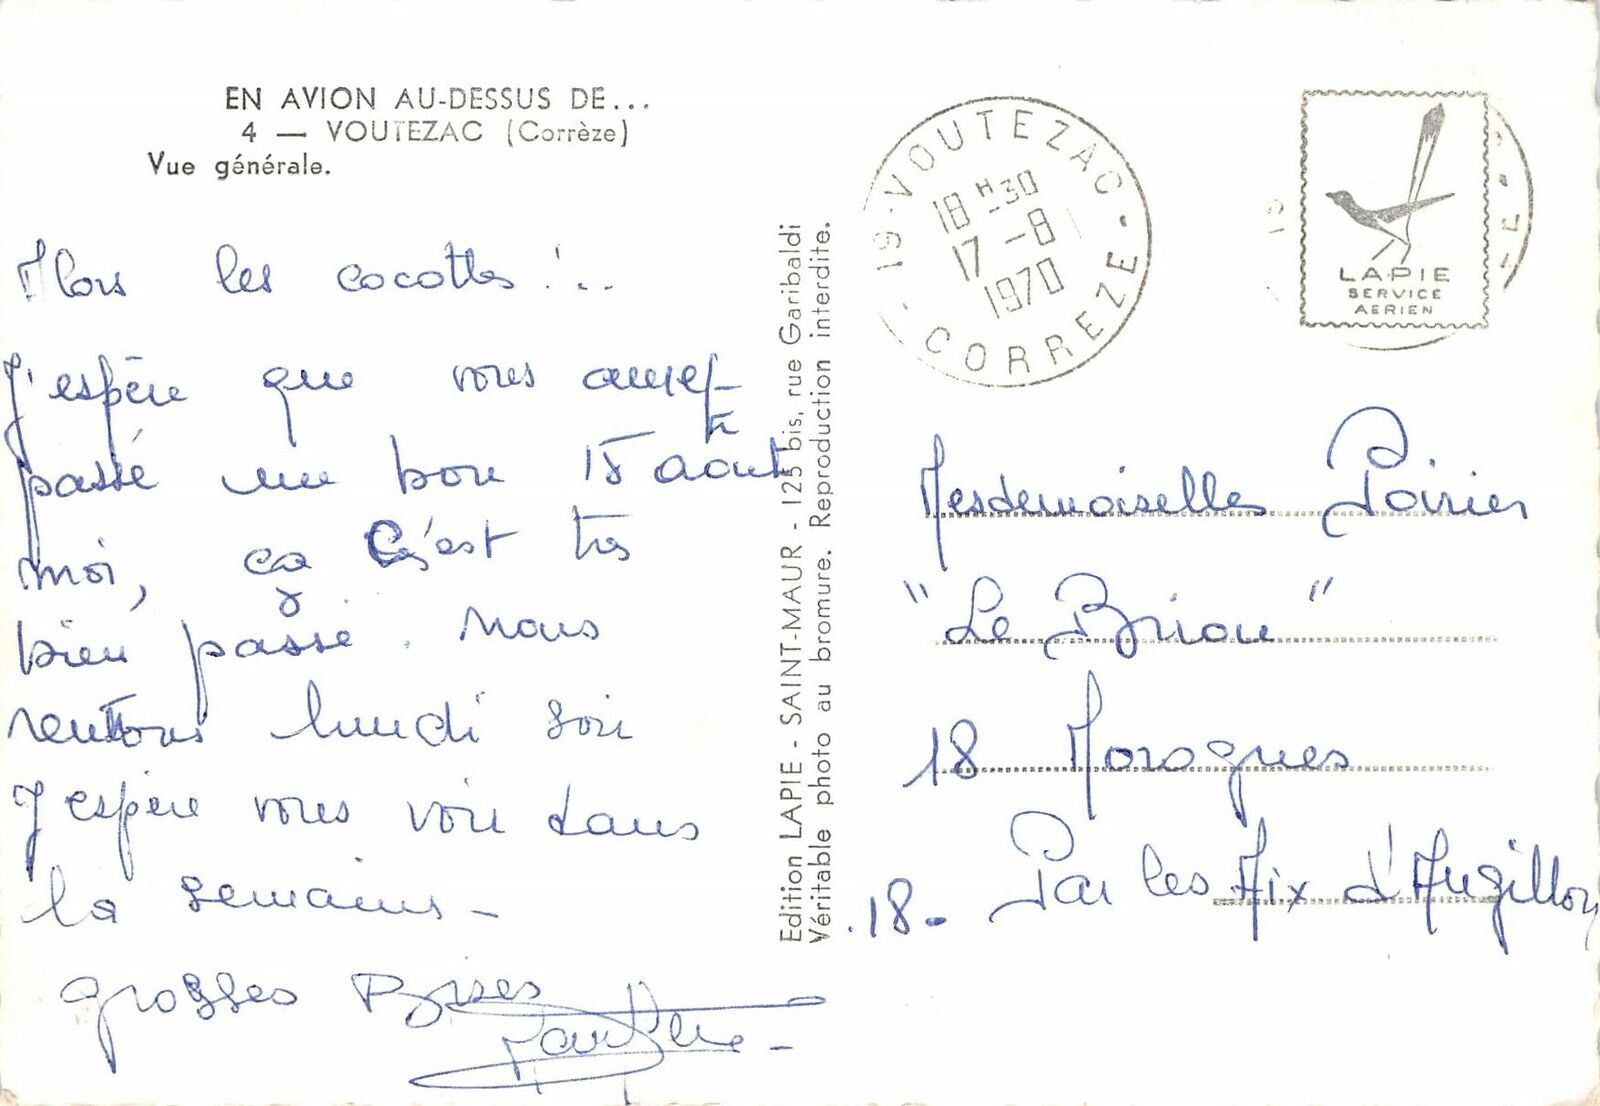 EN AVION AU-DESSUS DE...
4 — VOUTEZAC (Corrèze)
Vue générale.
Alors les cocottes !..
J'espère que vous avez
passé un bon 15 août
moi, ça s'est très
bien passé. Nous
rentrons lundi soir
J'espère vous voir dans
la semaine -
grosses Bises
Edition LAPIE - SAINT-MAUR - 125 bis, rue Garibaldi
Véritable photo au bromure. Reproduction interdite.
19 - VOUTEZAC -
18 H -30
17 -8
1970
CORREZE
LAPIE
SERVICE
AERIEN
Mesdemoiselles Poirier
"Le Briou"
18 Morogues
18- Par les Aix d'Angillon